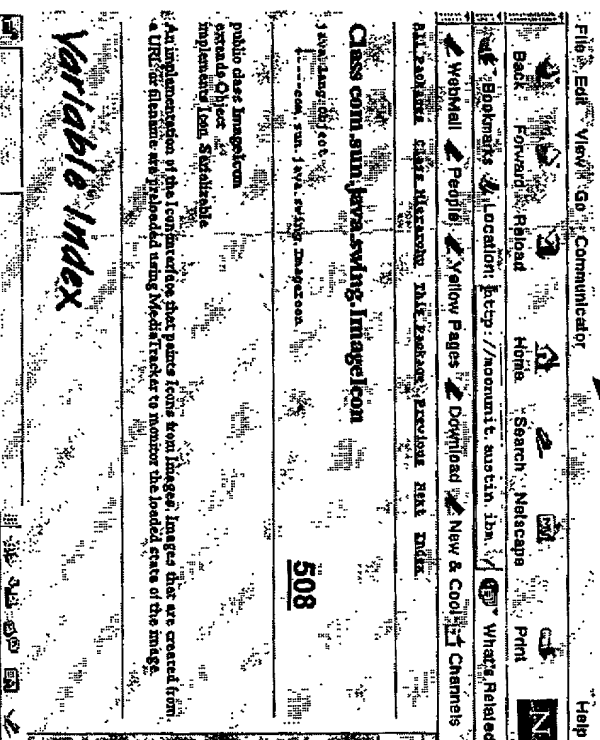 File Edit View Go Communicator Help
Back Forward Reload Home Search Netscape Print N
Bookmarks Location: http://moonunit.austin.ibm. What's Related
WebMail People Yellow Pages Download New & Cool Channels
All Packages Class Hierarchy This Package Previous Next Index
Class com.sun.java.swing.ImageIcon
java.lang.Object
+----com.sun.java.swing.ImageIcon
508
public class ImageIcon
extends Object
implements Icon, Serializable
An implementation of the Icon interface that paints Icons from Images. Images that are created from
a URL or filename are preloaded using MediaTracker to monitor the loaded state of the image.
Variable Index